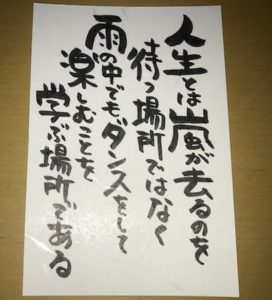 人生とは嵐が去るのを
待つ場所ではなく
雨の中でもダンスをして
楽しむことを
学ぶ場所である